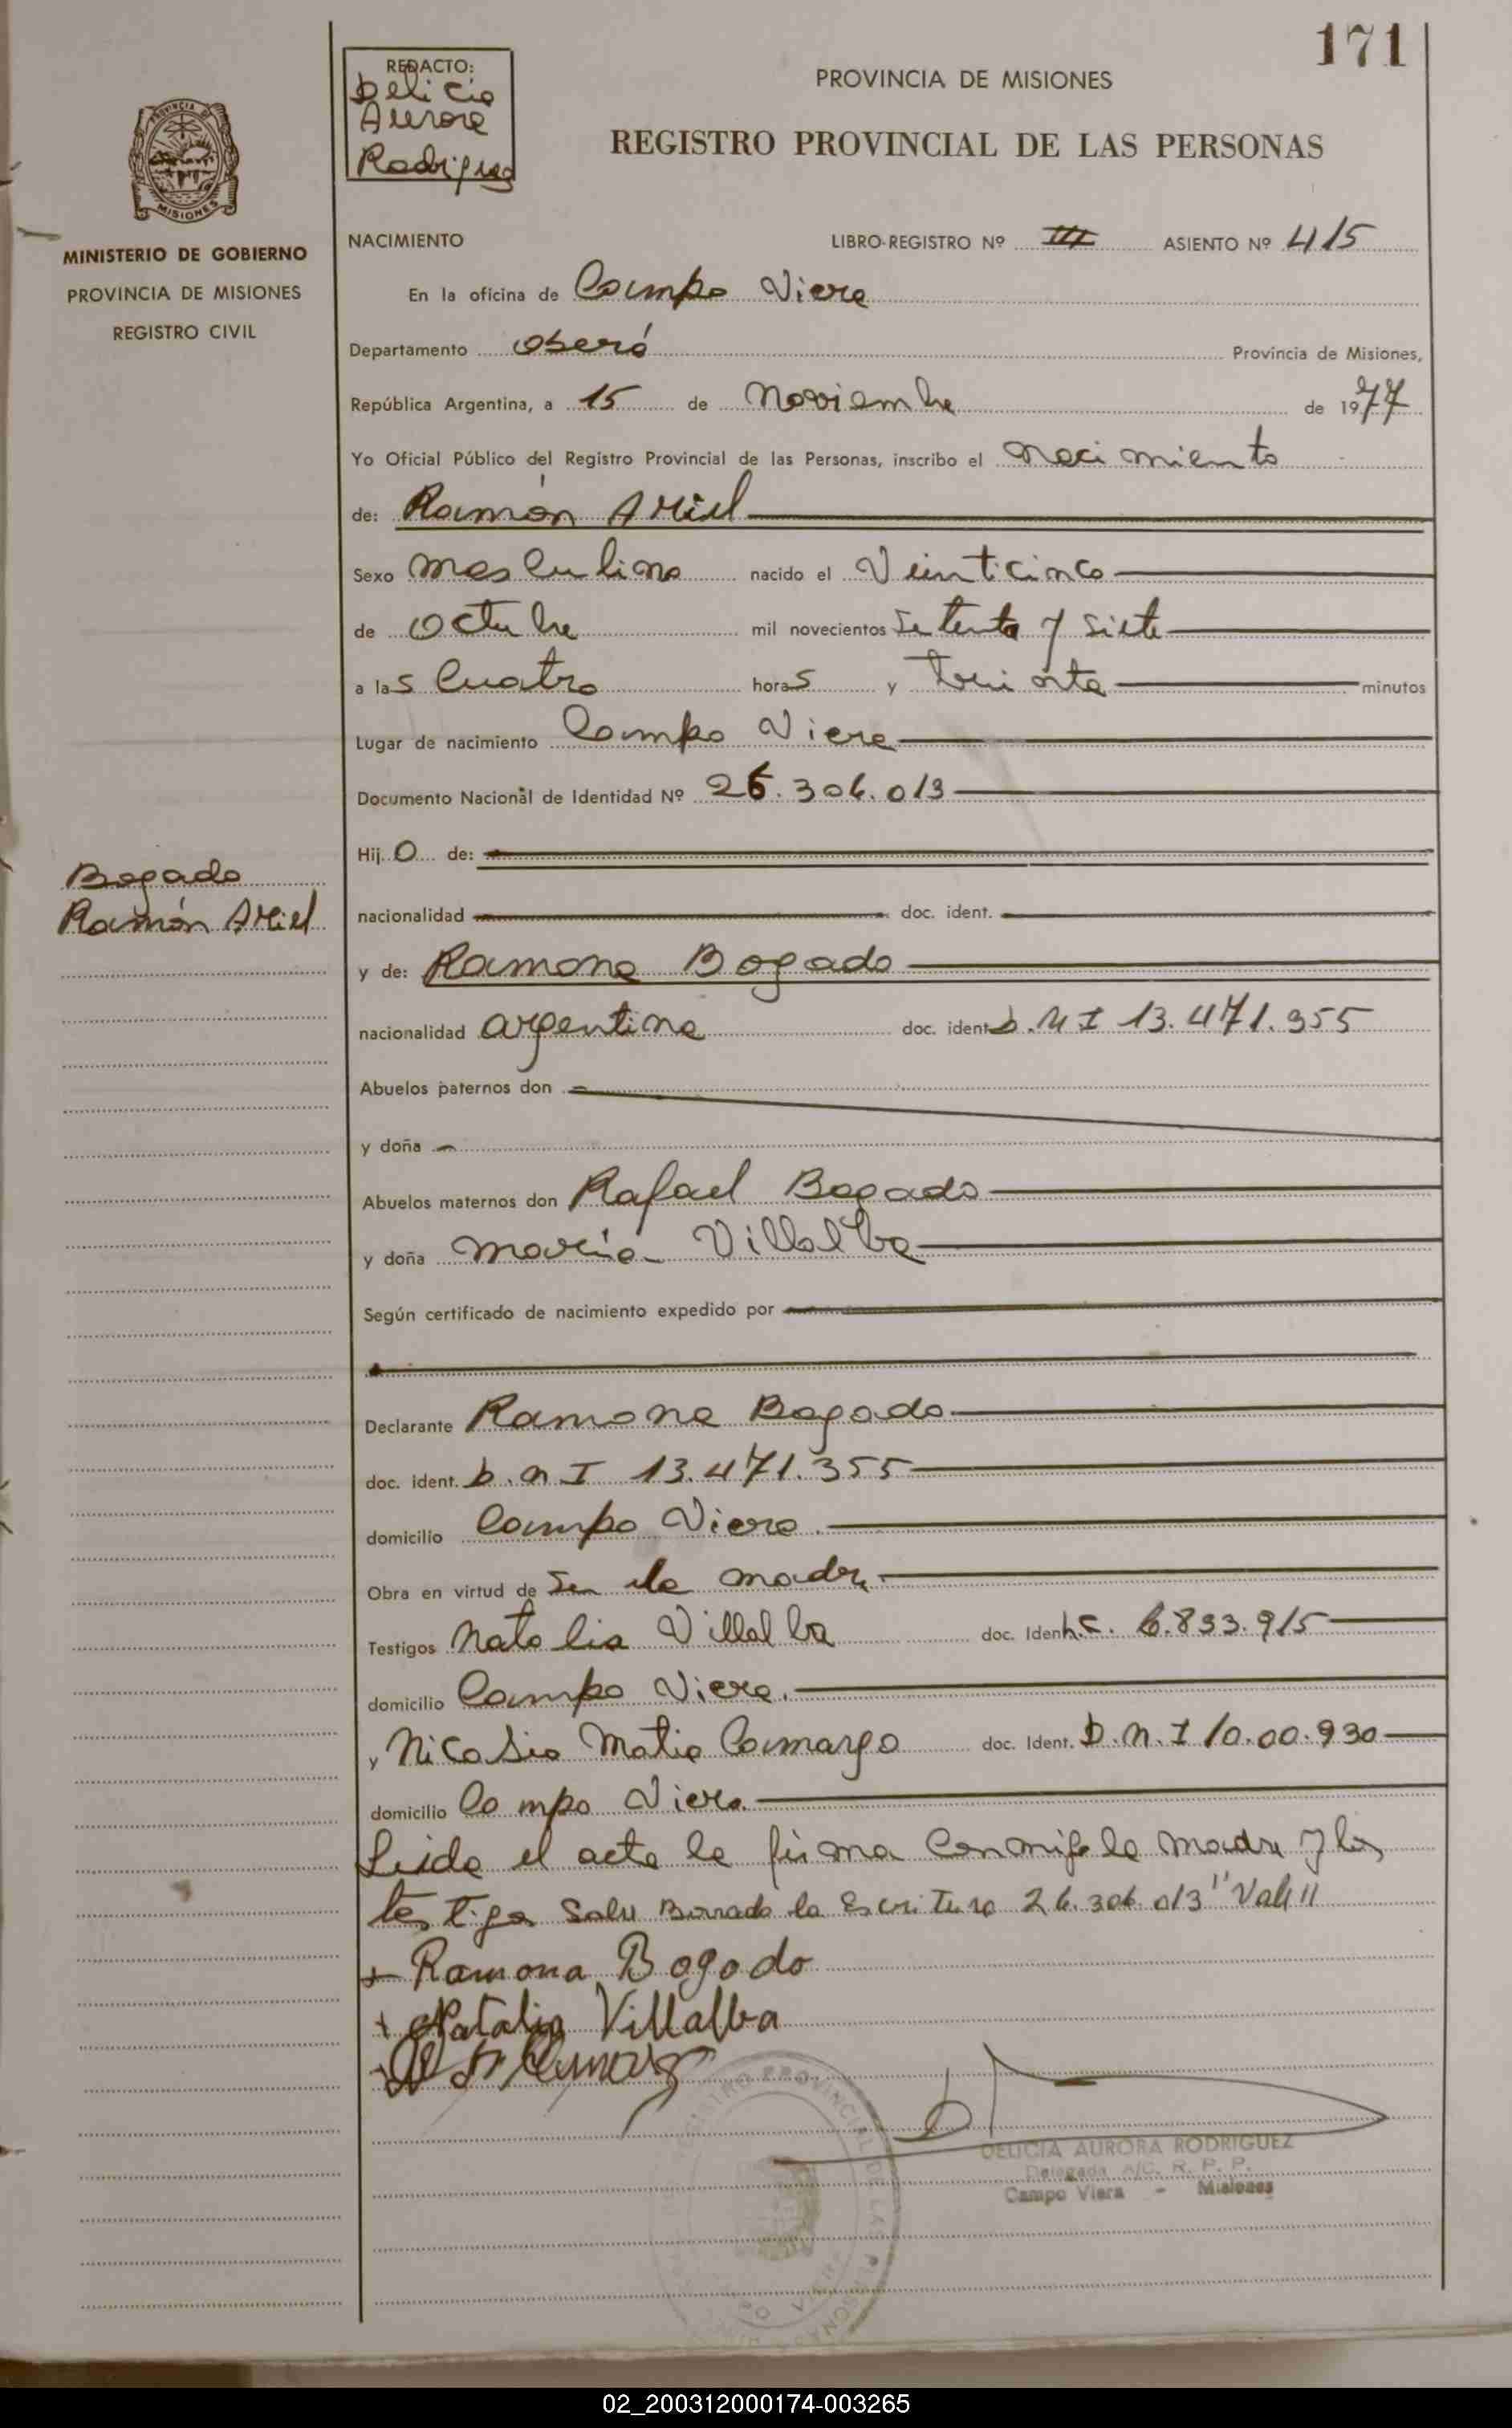 171
REDACTO:
Delicia
Aurora
Rodriguez
PROVINCIA DE MISIONES
REGISTRO PROVINCIAL DE LAS PERSONAS
PROVINCIA DE
MISIONES
MINISTERIO DE GOBIERNO
PROVINCIA DE MISIONES
REGISTRO CIVIL
NACIMIENTO LIBRO-REGISTRO Nº III ASIENTO Nº 415
En la oficina de Campo Viera
Departamento Oberá Provincia de Misiones,
República Argentina, a 15 de Noviembre de 1977
Yo Oficial Público del Registro Provincial de las Personas, inscribo el nacimiento
de: Ramón Ariel
Sexo masculino nacido el Veinticinco
de octubre mil novecientos setenta y siete
a las cuatro horas y treinta minutos
Lugar de nacimiento Campo Viera
Documento Nacional de Identidad Nº 26.306.013
Hijo de:
Bogado
Ramón Ariel
nacionalidad doc. ident.
y de: Ramona Bogado
nacionalidad argentina doc. ident D.N I 13.471.355
Abuelos paternos don
y doña
Abuelos maternos don Rafael Bogado
y doña María Villalba
Según certificado de nacimiento expedido por
Declarante Ramona Bogado
doc. ident. D.N.I 13.471.355
domicilio Campo Viera.
Obra en virtud de Ser la madre
Testigos Natalia Villalba doc. Ident L.C. 6.833.915
domicilio Campo Viera.
y Nicasio Matia Camargo doc. Ident. D.N.I 10.00.930
domicilio Campo Viera.
Leida el acta la firma conmigo la madre y los
testigos Borrado la Escritura 26.306.013 "Vale"
+ Ramona Bogado
+ Natalia Villalba
REGISTRO PROVINCIAL DE LAS PERSONAS
DELICIA AURORA RODRIGUEZ
Delegada A/C. R. P. P.
Campo Viera - Misiones
02_200312000174-003265